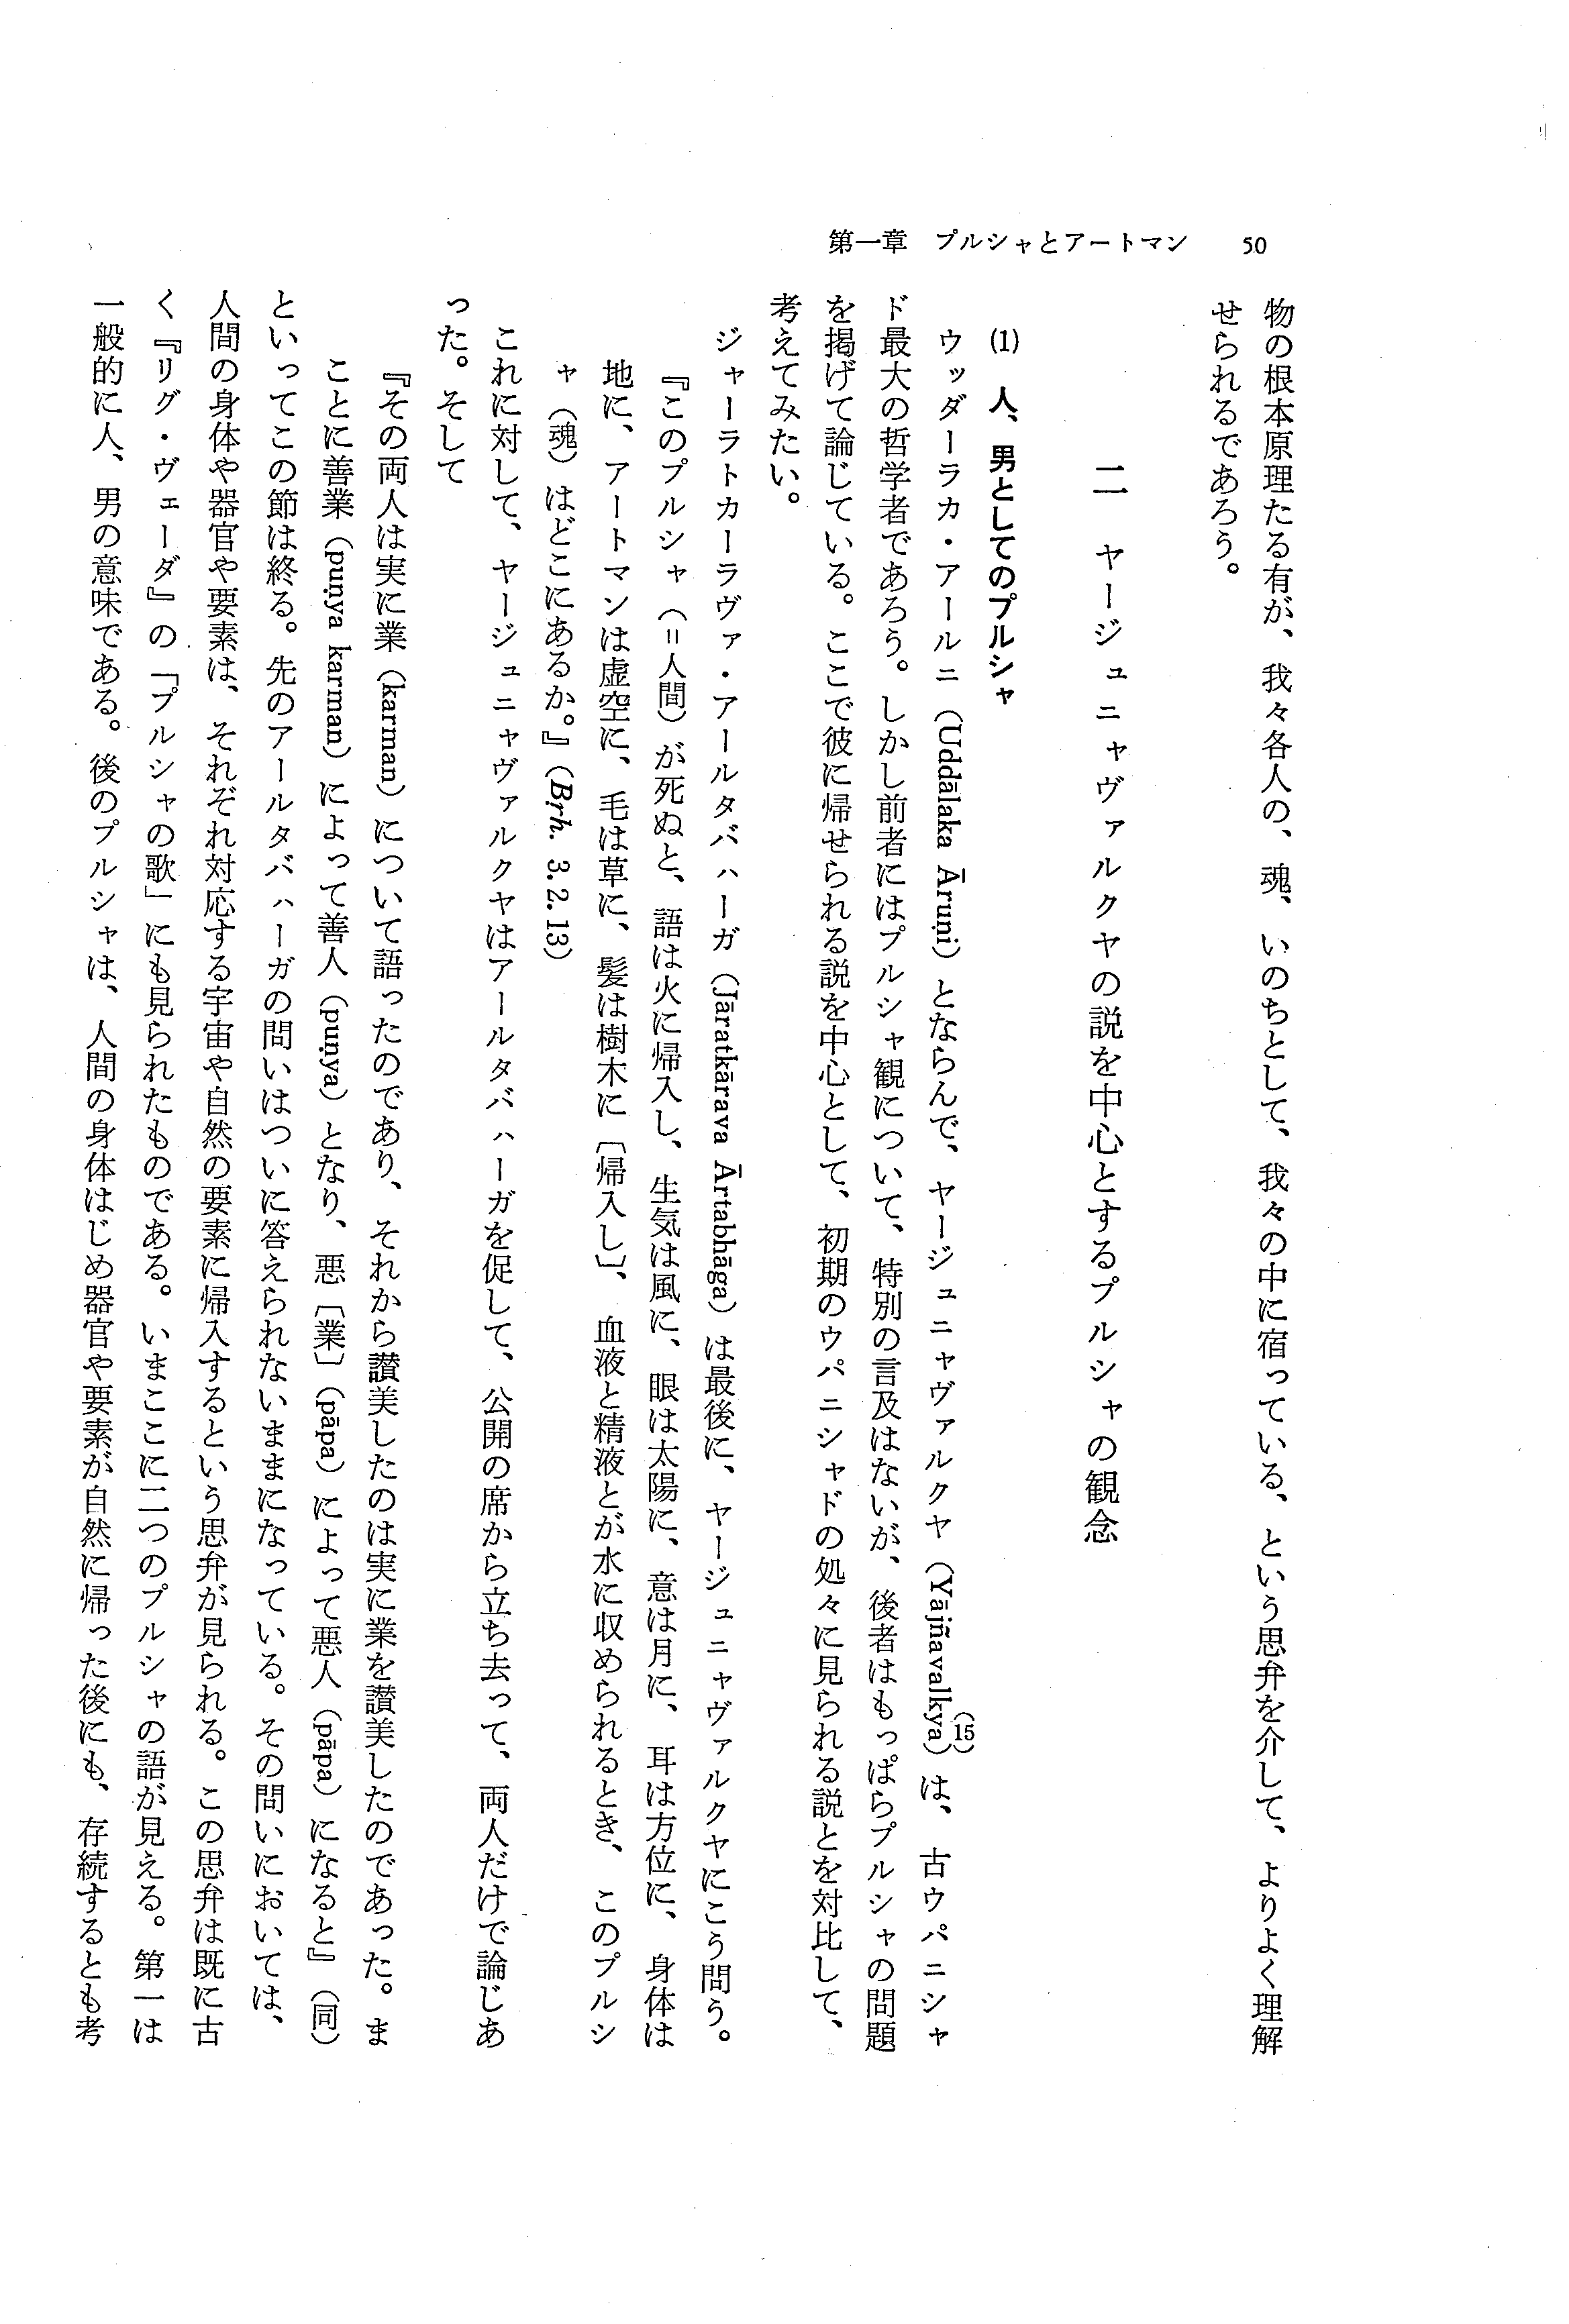 第一章　プルシャとアートマン　50
物の根本原理たる有が、我々各人の、魂、いのちとして、我々の中に宿っている、という思弁を介して、よりよく理解
せられるであろう。
二　ヤージュニャヴァルクヤの説を中心とするプルシャの観念
(1)　人、男としてのプルシャ
ウッダーラカ・アールニ（Uddālaka Āruṇi）とならんで、ヤージュニャヴァルクヤ（Yājñavalkya）(15)は、古ウパニシャ
ド最大の哲学者であろう。しかし前者にはプルシャ観について、特別の言及はないが、後者はもっぱらプルシャの問題
を掲げて論じている。ここで彼に帰せられる説を中心として、初期のウパニシャドの処々に見られる説とを対比して、
考えてみたい。
ジャーラトカーラヴァ・アールタバハーガ（Jāratkārava Ārtabhāga）は最後に、ヤージュニャヴァルクヤにこう問う。
『このプルシャ（＝人間）が死ぬと、語は火に帰入し、生気は風に、眼は太陽に、意は月に、耳は方位に、身体は
地に、アートマンは虚空に、毛は草に、髪は樹木に〔帰入し〕、血液と精液とが水に収められるとき、このプルシ
ャ（魂）はどこにあるか。』（Bṛh. 3. 2. 13）
これに対して、ヤージュニャヴァルクヤはアールタバハーガを促して、公開の席から立ち去って、両人だけで論じあ
った。そして
『その両人は実に業（karman）について語ったのであり、それから讃美したのは実に業を讃美したのであった。ま
ことに善業（puṇya karman）によって善人（puṇya）となり、悪〔業〕（pāpa）によって悪人（pāpa）になると』（同）
といってこの節は終る。先のアールタバハーガの問いはついに答えられないままになっている。その問いにおいては、
人間の身体や器官や要素は、それぞれ対応する宇宙や自然の要素に帰入するという思弁が見られる。この思弁は既に古
く『リグ・ヴェーダ』の「プルシャの歌」にも見られたものである。いまここに二つのプルシャの語が見える。第一は
一般的に人、男の意味である。後のプルシャは、人間の身体はじめ器官や要素が自然に帰った後にも、存続するとも考